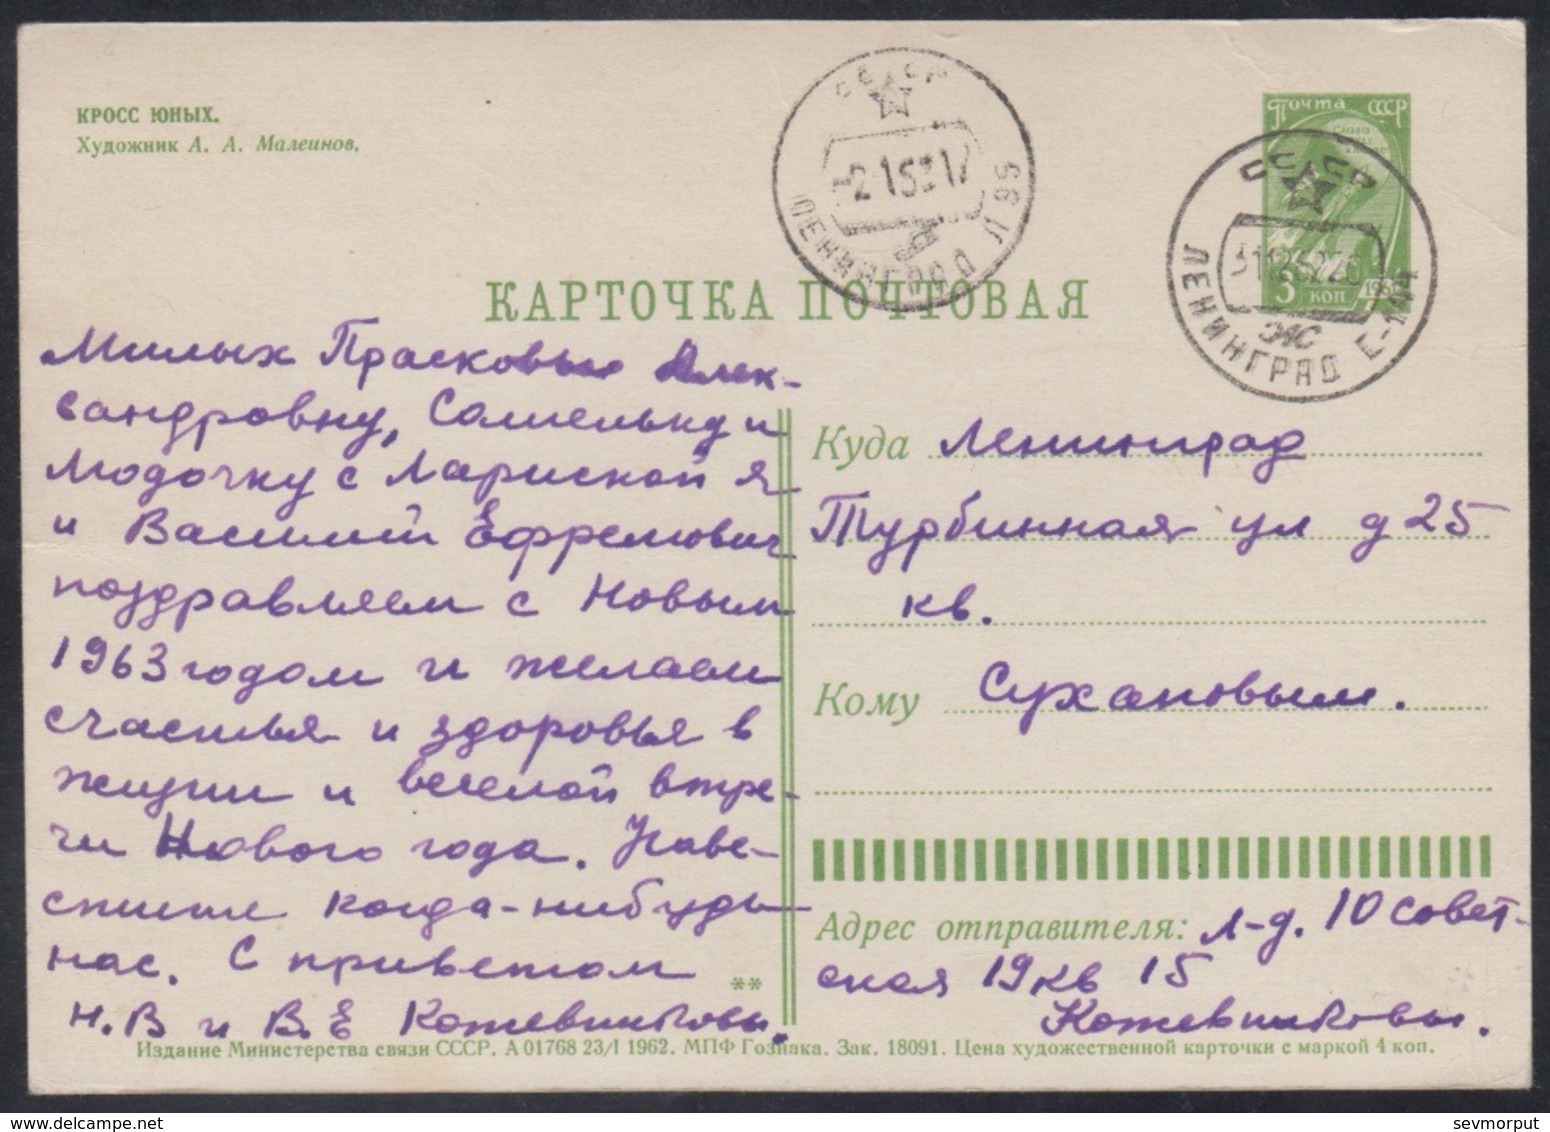 КРОСС ЮНЫХ.
Художник А. А. Малеинов.
СССР
2 1 63 17
ЛЕНИНГРАД Л 95
почта СССР
3 коп 1961
СССР
ЛЕНИНГРАД Е-104
КАРТОЧКА ПОЧТОВАЯ
Милых Прасковью Алек-
сандровну, Сашеньку и
Людочку с Лариской я
и Василий Ефремович
поздравляем с Новым
1963 годом и желаем
счастья и здоровья в
жизни и веселой встре-
чи Нового года. Наве-
стите когда-нибудь
нас. С приветом
Н.В и В.Е Кожевниковы.
**
Куда Ленинград
Турбинная ул д 25
кв.
Кому Сухановым.
Адрес отправителя: Л-д. 10 Совет-
ская 19 кв 15
Кожевниковы.
Издание Министерства связи СССР. А 01768 23/I 1962. МПФ Гознака. Зак. 18091. Цена художественной карточки с маркой 4 коп.
sevmorput